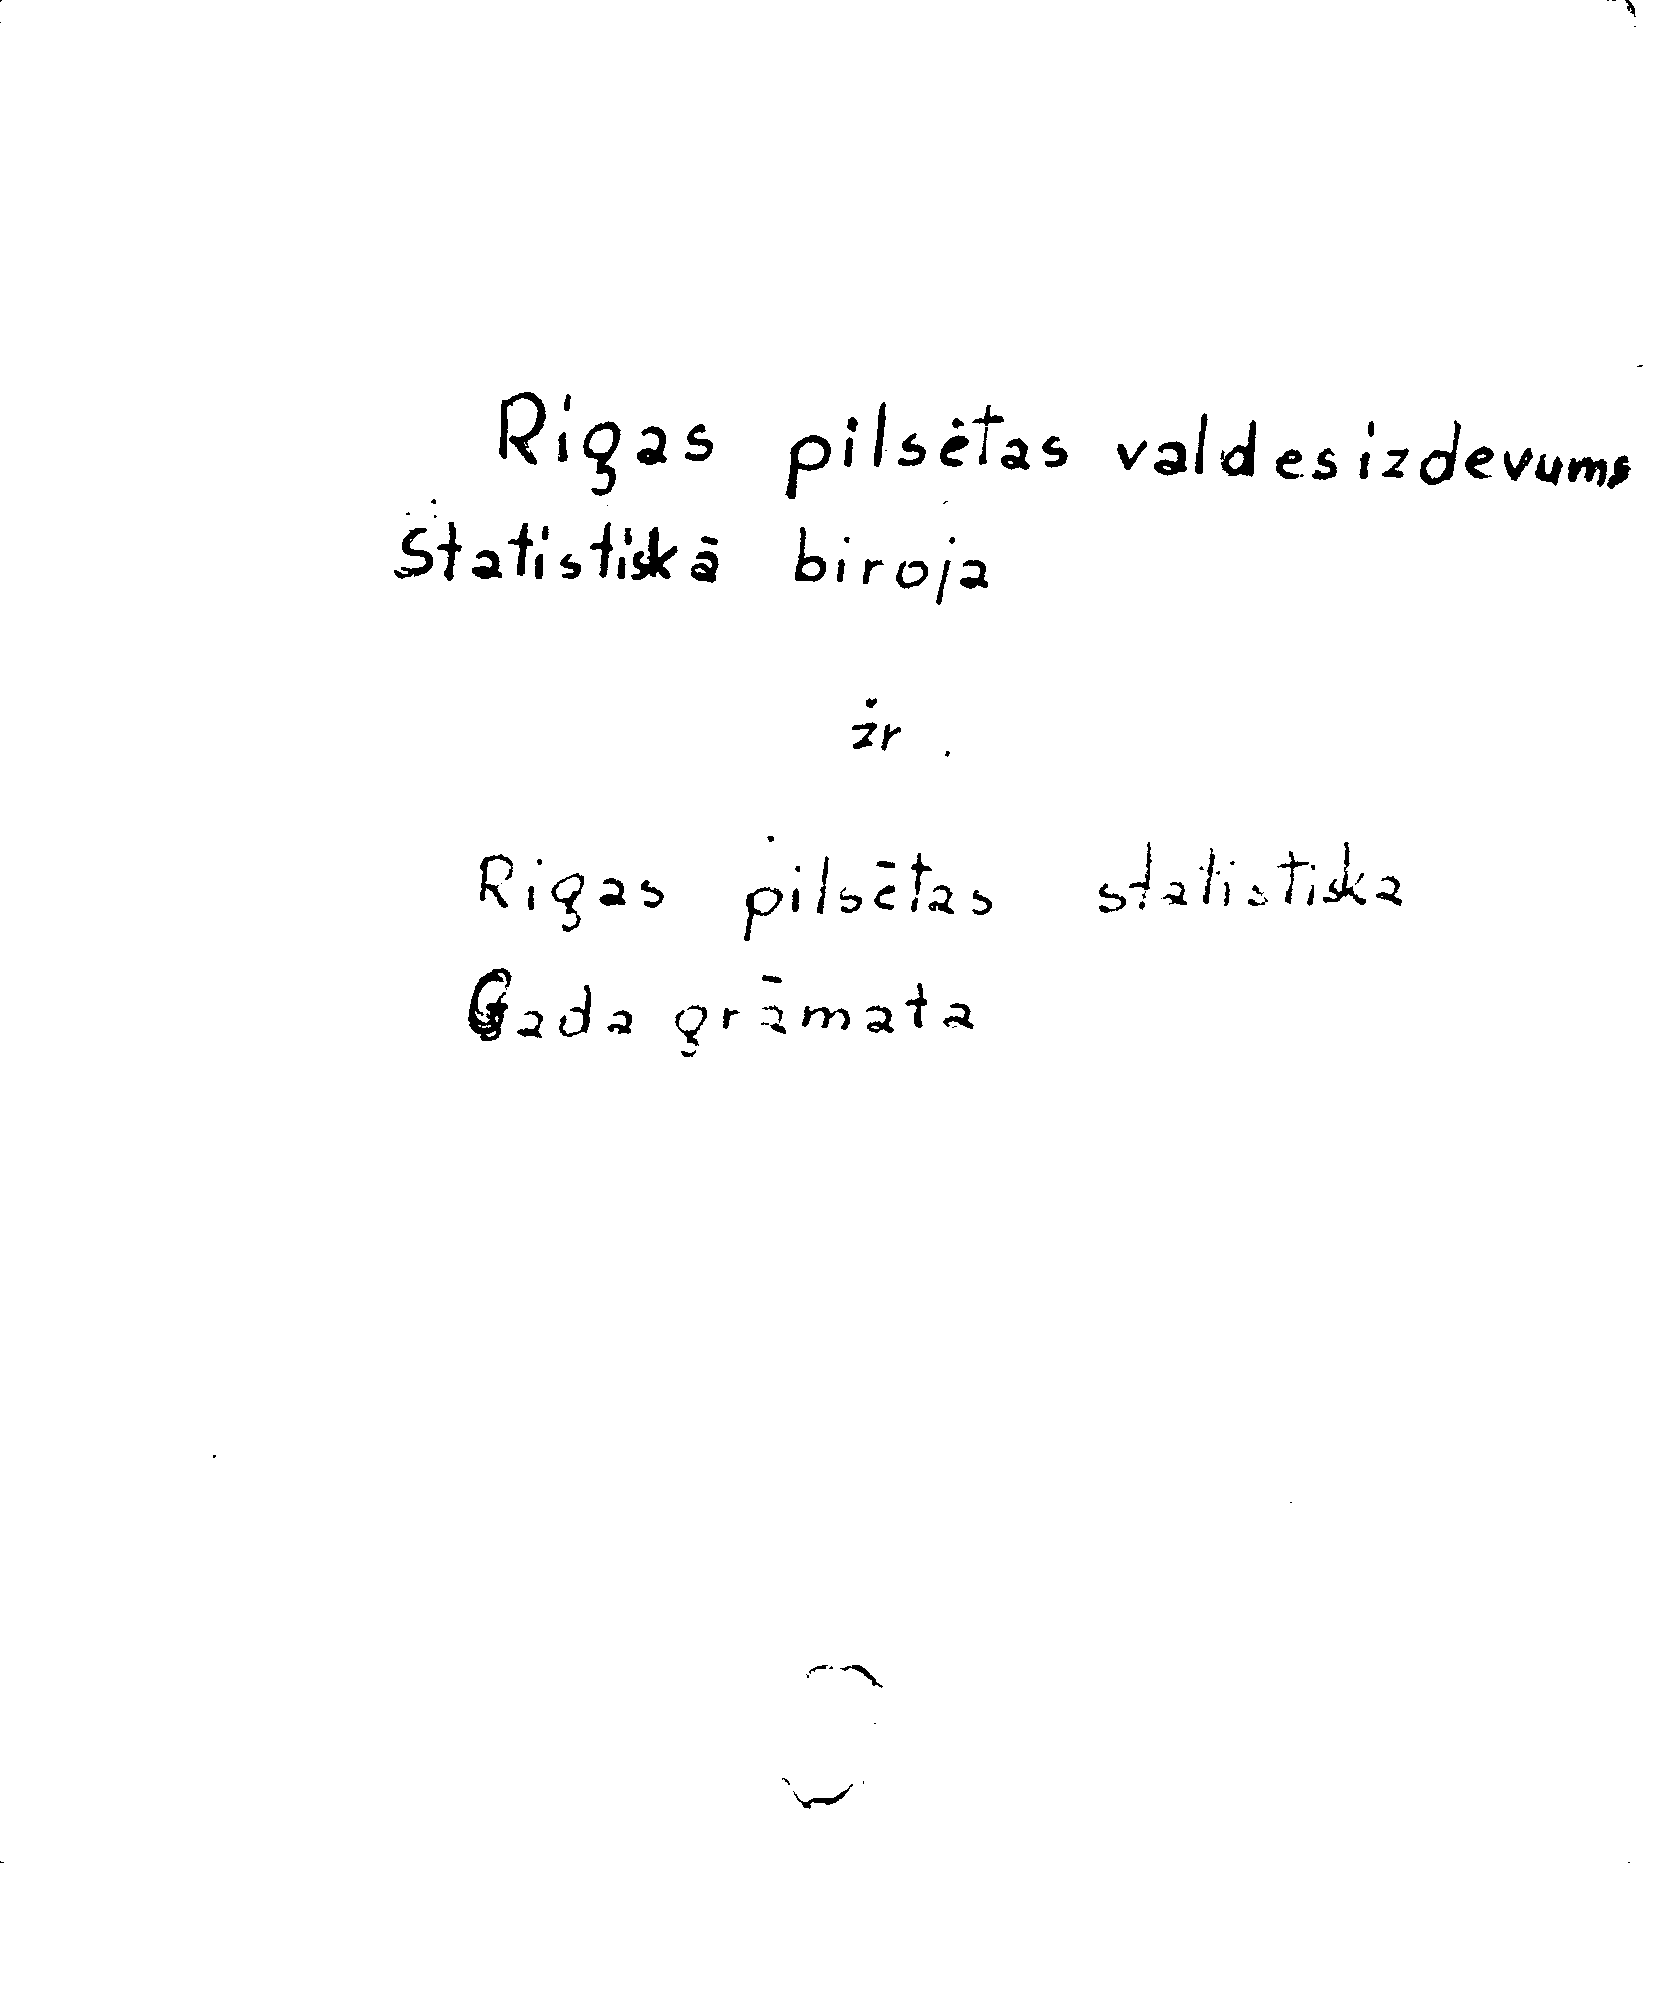 Rigas pilsētas valdes izdevums
Statistiskā biroja
żr.
Rigas pilsētas statistiska
Gada grāmata